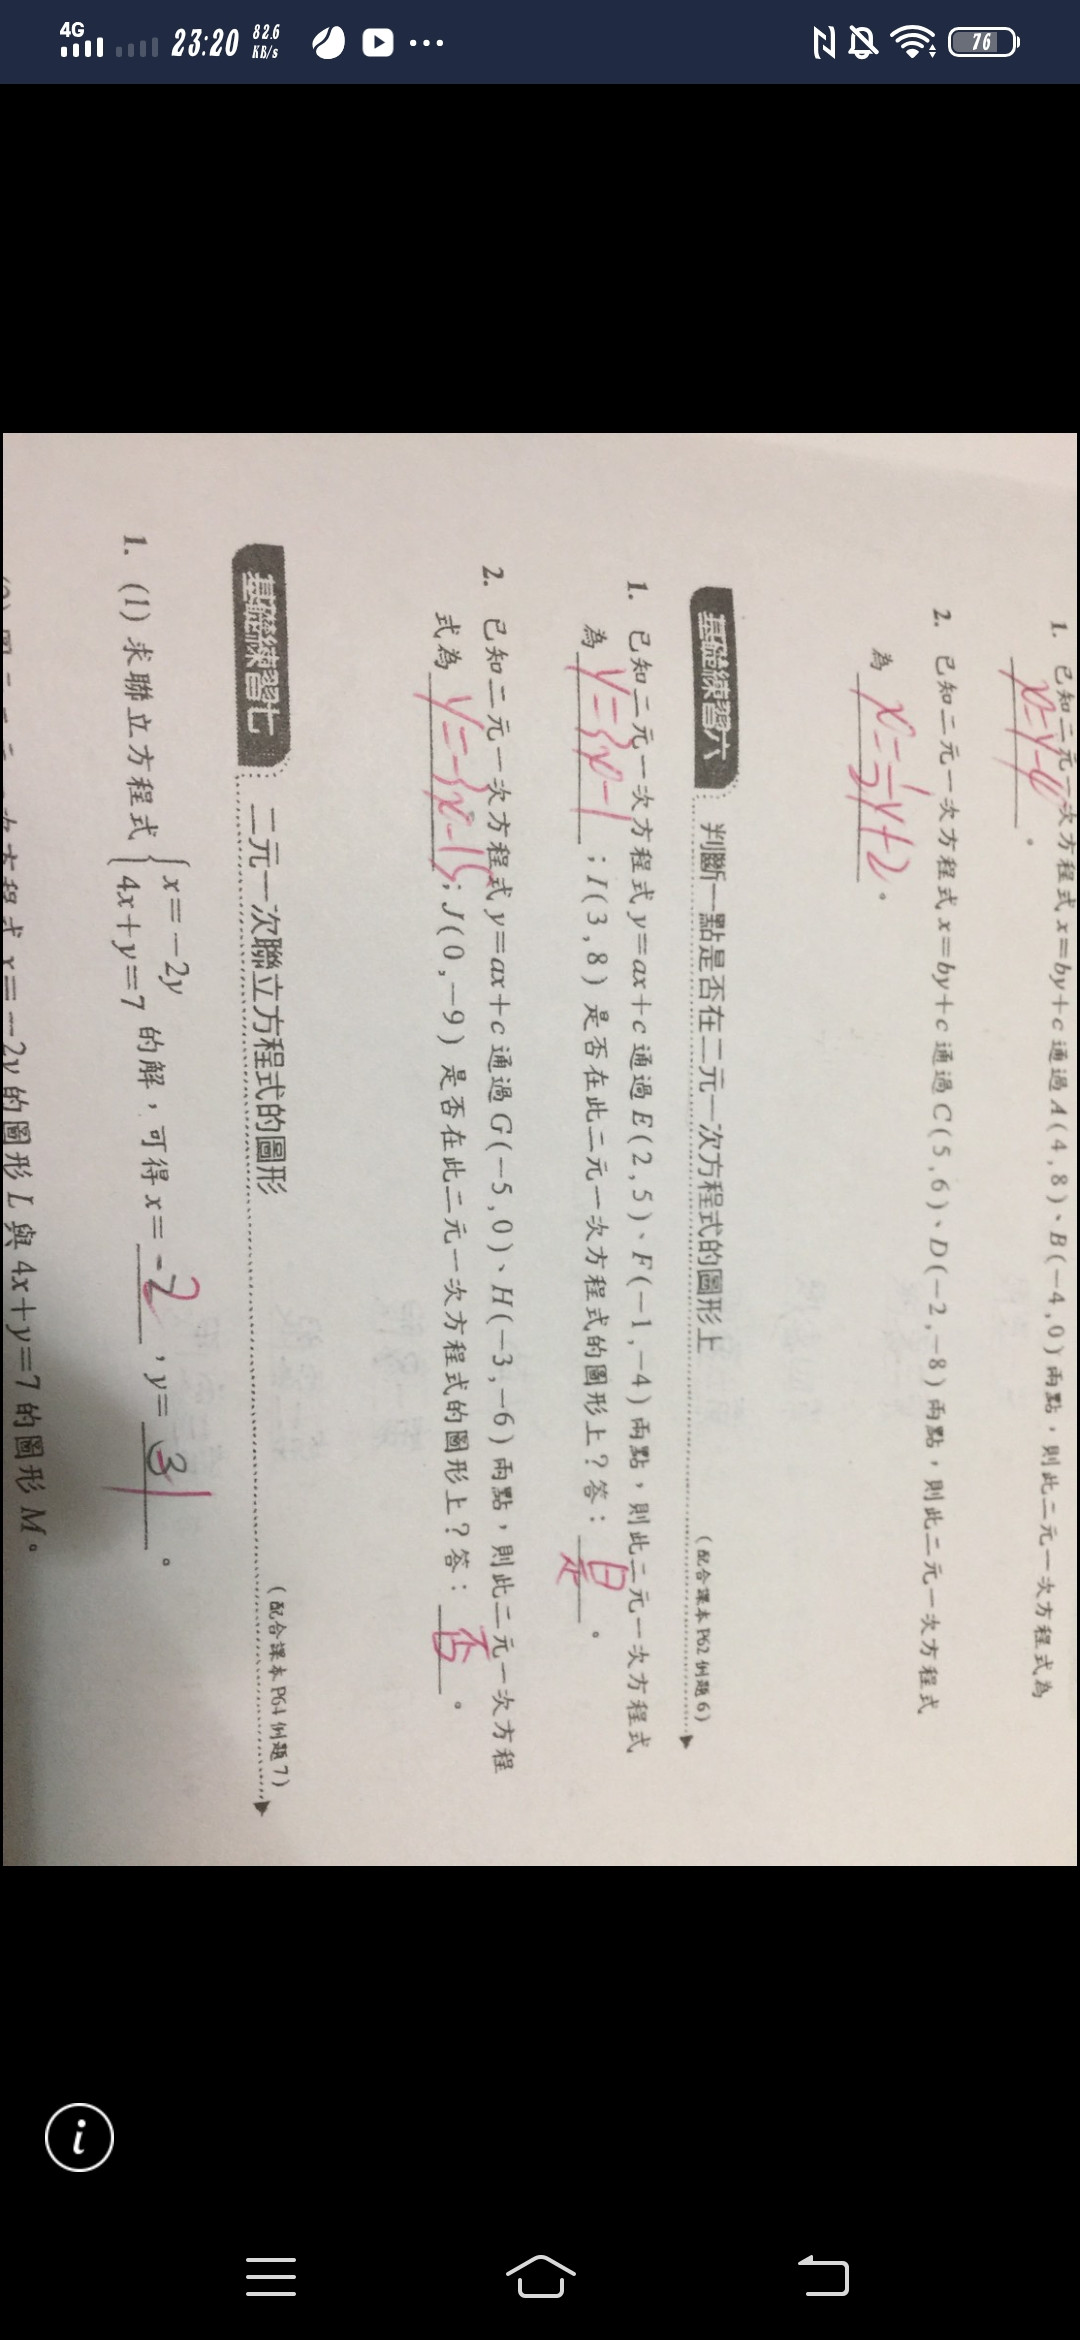 4G 23:20 82.6 KB/s 76
1. 已知二元一次方程式x=by+c通過A(4,8)、B(-4,0)兩點，則此二元一次方程式為
x=y-4。
2. 已知二元一次方程式x=by+c通過C(5,6)、D(-2,-8)兩點，則此二元一次方程式
為 x=1/2y+2。
基礎練習六 判斷一點是否在二元一次方程式的圖形上 (配合課本P62例題6)
1. 已知二元一次方程式y=ax+c通過E(2,5)、F(-1,-4)兩點，則此二元一次方程式
為 y=3x-1；I(3,8)是否在此二元一次方程式的圖形上？答：是。
2. 已知二元一次方程式y=ax+c通過G(-5,0)、H(-3,-6)兩點，則此二元一次方程
式為 y=-3x-15；J(0,-9)是否在此二元一次方程式的圖形上？答：否。
基礎練習七 二元一次聯立方程式的圖形 (配合課本P64例題7)
1. (1) 求聯立方程式{x=-2y 4x+y=7的解，可得x=-2，y=。
方程式x=-2y的圖形L與4x+y=7的圖形M。
i